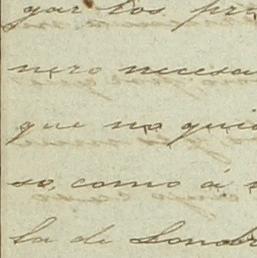 gar los pro
nero necesa
que no quie
so, como á
la de Londr